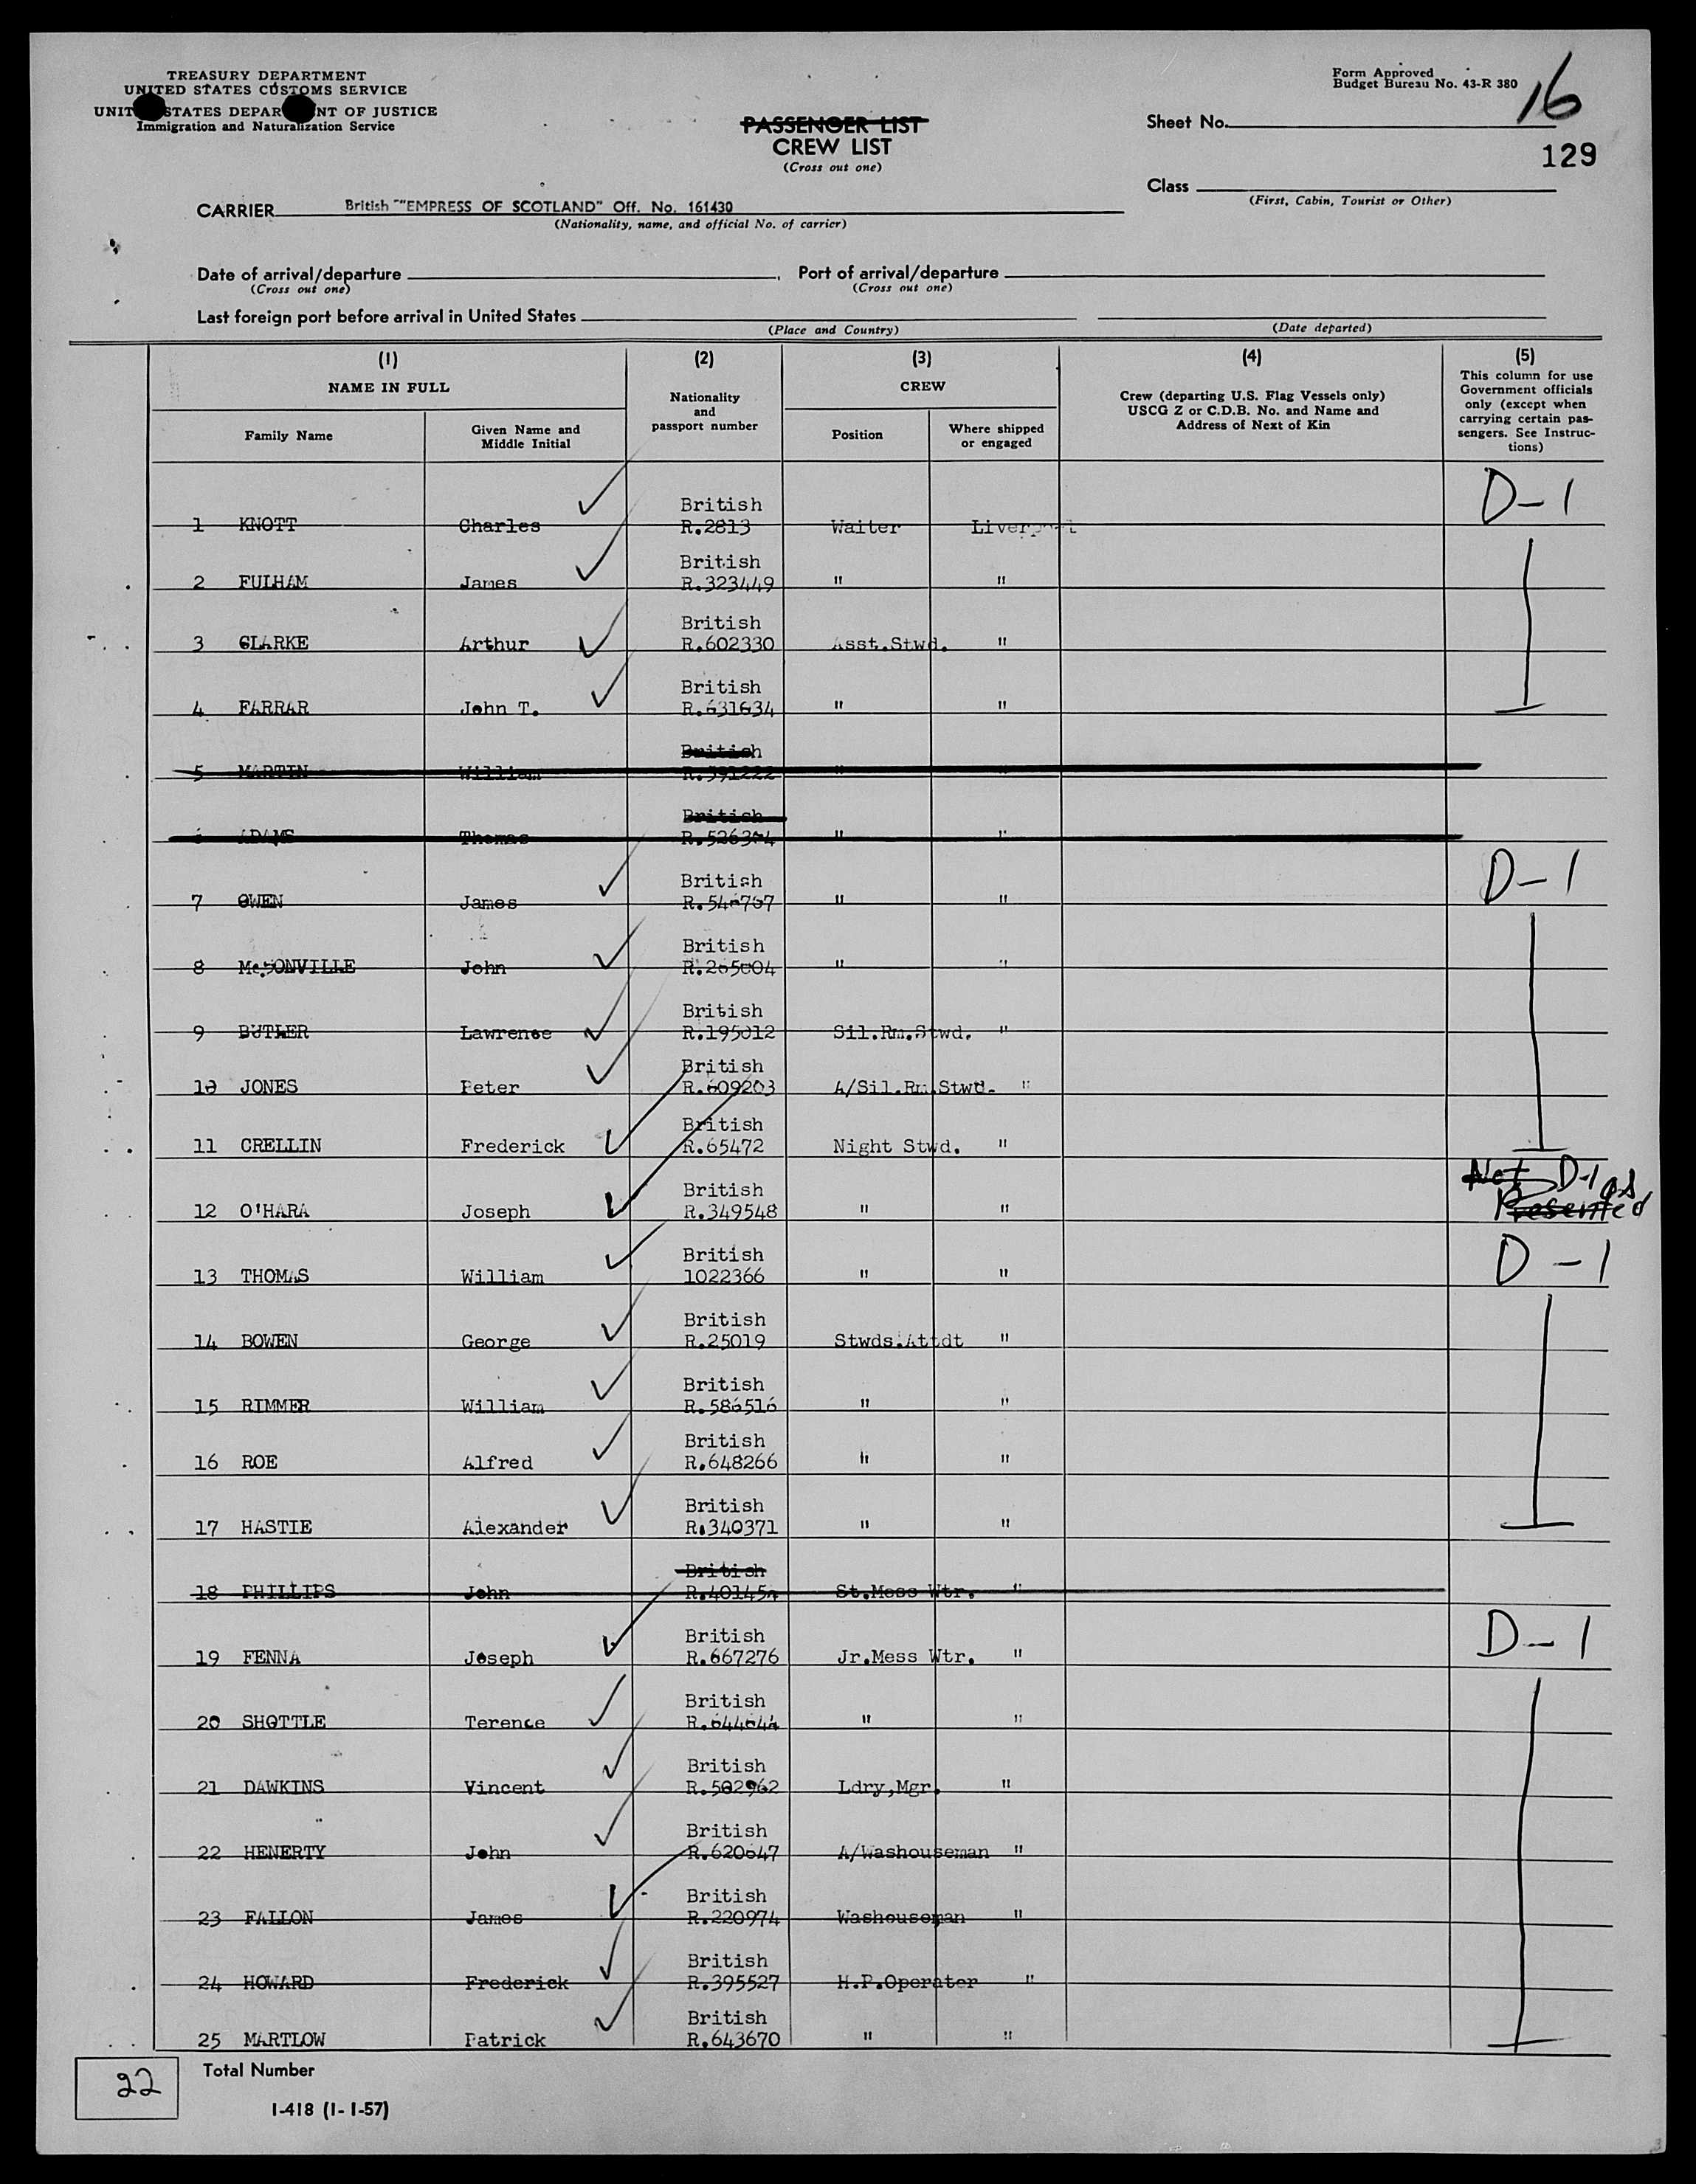 TREASURY DEPARTMENT
UNITED STATES CUSTOMS SERVICE
UNIT STATES DEPAR NT OF JUSTICE
Immigration and Naturalization Service
Form Approved
Budget Bureau No. 43-R 380
PASSENGER LIST
CREW LIST
(Cross out one)
Sheet No. 16
129
Class
(First, Cabin, Tourist or Other)
CARRIER British "EMPRESS OF SCOTLAND" Off. No. 161430
(Nationality, name, and official No. of carrier)
Date of arrival/departure
(Cross out one)
Port of arrival/departure
(Cross out one)
Last foreign port before arrival in United States
(Place and Country)
(Date departed)
(1) (2) (3) (4) (5)
NAME IN FULL
Family Name
Given Name and
Middle Initial
Nationality
and
passport number
CREW
Position
Where shipped
or engaged
Crew (departing U.S. Flag Vessels only)
USCG Z or C.D.B. No. and Name and
Address of Next of Kin
This column for use
Government officials
only (except when
carrying certain pas-
sengers. See Instruc-
tions)
British D-1
1 KNOTT Charles R.2813 Waiter Liverpool
British
2 FULHAM James R.323449 " "
British
3 CLARKE Arthur R.602330 Asst.Stwd. "
British
4 FARRAR John T. R.631634 " "
British
5 MARTIN William R.391222 " "
British
ADAMS Thomas " "
British D-1
7 OWEN James " "
British
8 John R.265004 " "
British
9 BUTLER Lawrence R.195012 Sil.Rm.Stwd. "
British
10 JONES Peter R.609203 A/Sil.Rm.Stwd. "
British
11 CRELLIN Frederick R.65472 Night Stwd. "
British Not D-1 as
12 O'HARA Joseph R.349548 " " Presented
British D-1
13 THOMAS William 1022366 " "
British
14 BOWEN George R.25019 Stwds.Attdt "
British
15 RIMMER William R.586516 " "
British
16 ROE Alfred R.648266 " "
British
17 HASTIE Alexander R.340371 " "
British
18 PHILLIPS John St.Mess Wtr. "
British D-1
19 FENNA Joseph R.667276 Jr.Mess Wtr. "
British
20 SHOTTLE Terence R.644644 " "
British
21 DAWKINS Vincent R.502962 Ldry,Mgr. "
British
22 HENERTY John R.620647 A/Washouseman "
British
23 FALLON James R.220974 Washouseman "
British
24 HOWARD Frederick R.395527 H.P.Operator "
British
25 MARTLOW Patrick R.643670 " "
22 Total Number
I-418 (1-1-57)